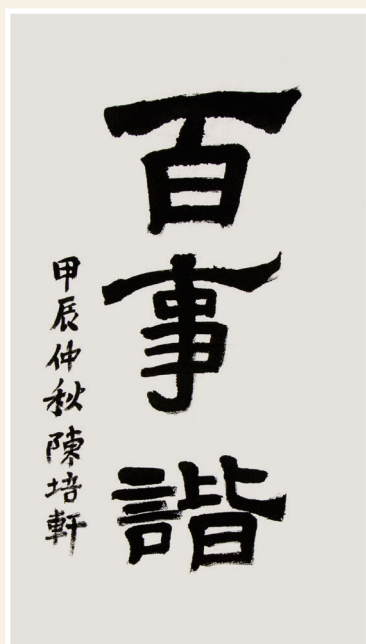 百事諧
甲辰仲秋陳培軒